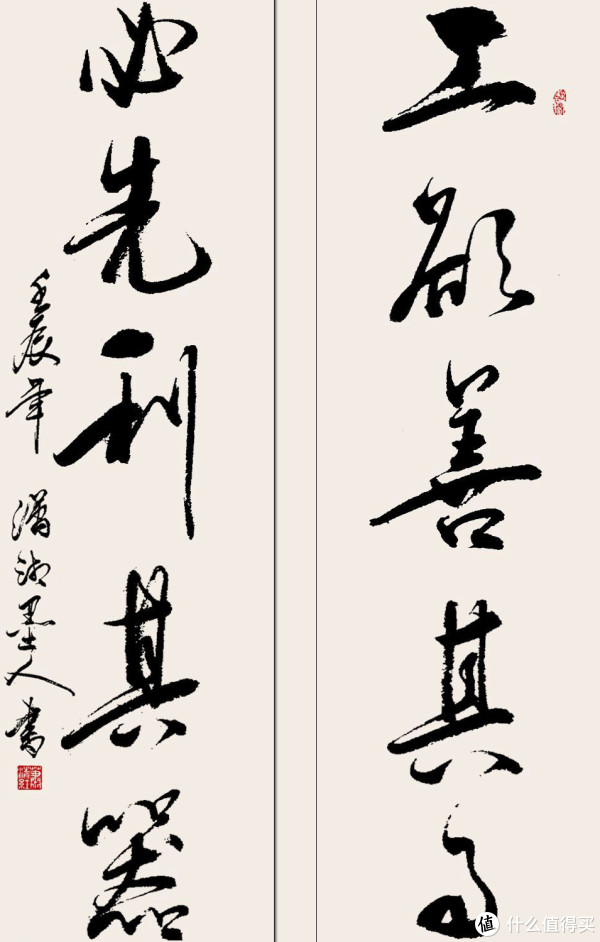 工欲善其事
必先利其器
壬辰年 瀟湘墨人書
值 什么值得买